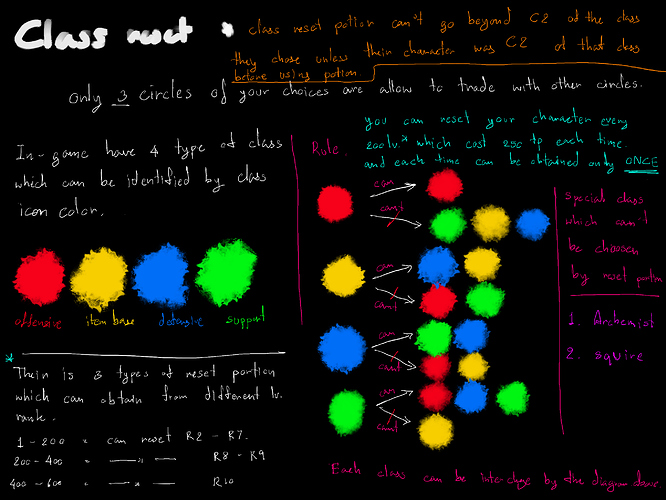 Class reset
* class reset potion can't go beyond C2 of the class
they chose unless their character was C2 of that class
before using potion.
Only 3 circles of your choices are allow to trade with other circles.
In-game have 4 type of class
which can be identified by class
icon color.
offensive item base defensive support
*
Their is 3 types of reset portion
which can obtain from different lv.
rank.
1 - 200 " can reset R2 - R7.
200 - 400 " — " — R8 - R9
400 - 600 " — " — R10
you can reset your character every
200 lv.* which cost 250 tp each time.
and each time can be obtained only ONCE
Rule.
can
can't
can
can't
can
can't
can
can't
special class
which can't
be choosen
by reset portion
1. Alchemist
2. squire
Each class can be interchange by the diagram above.